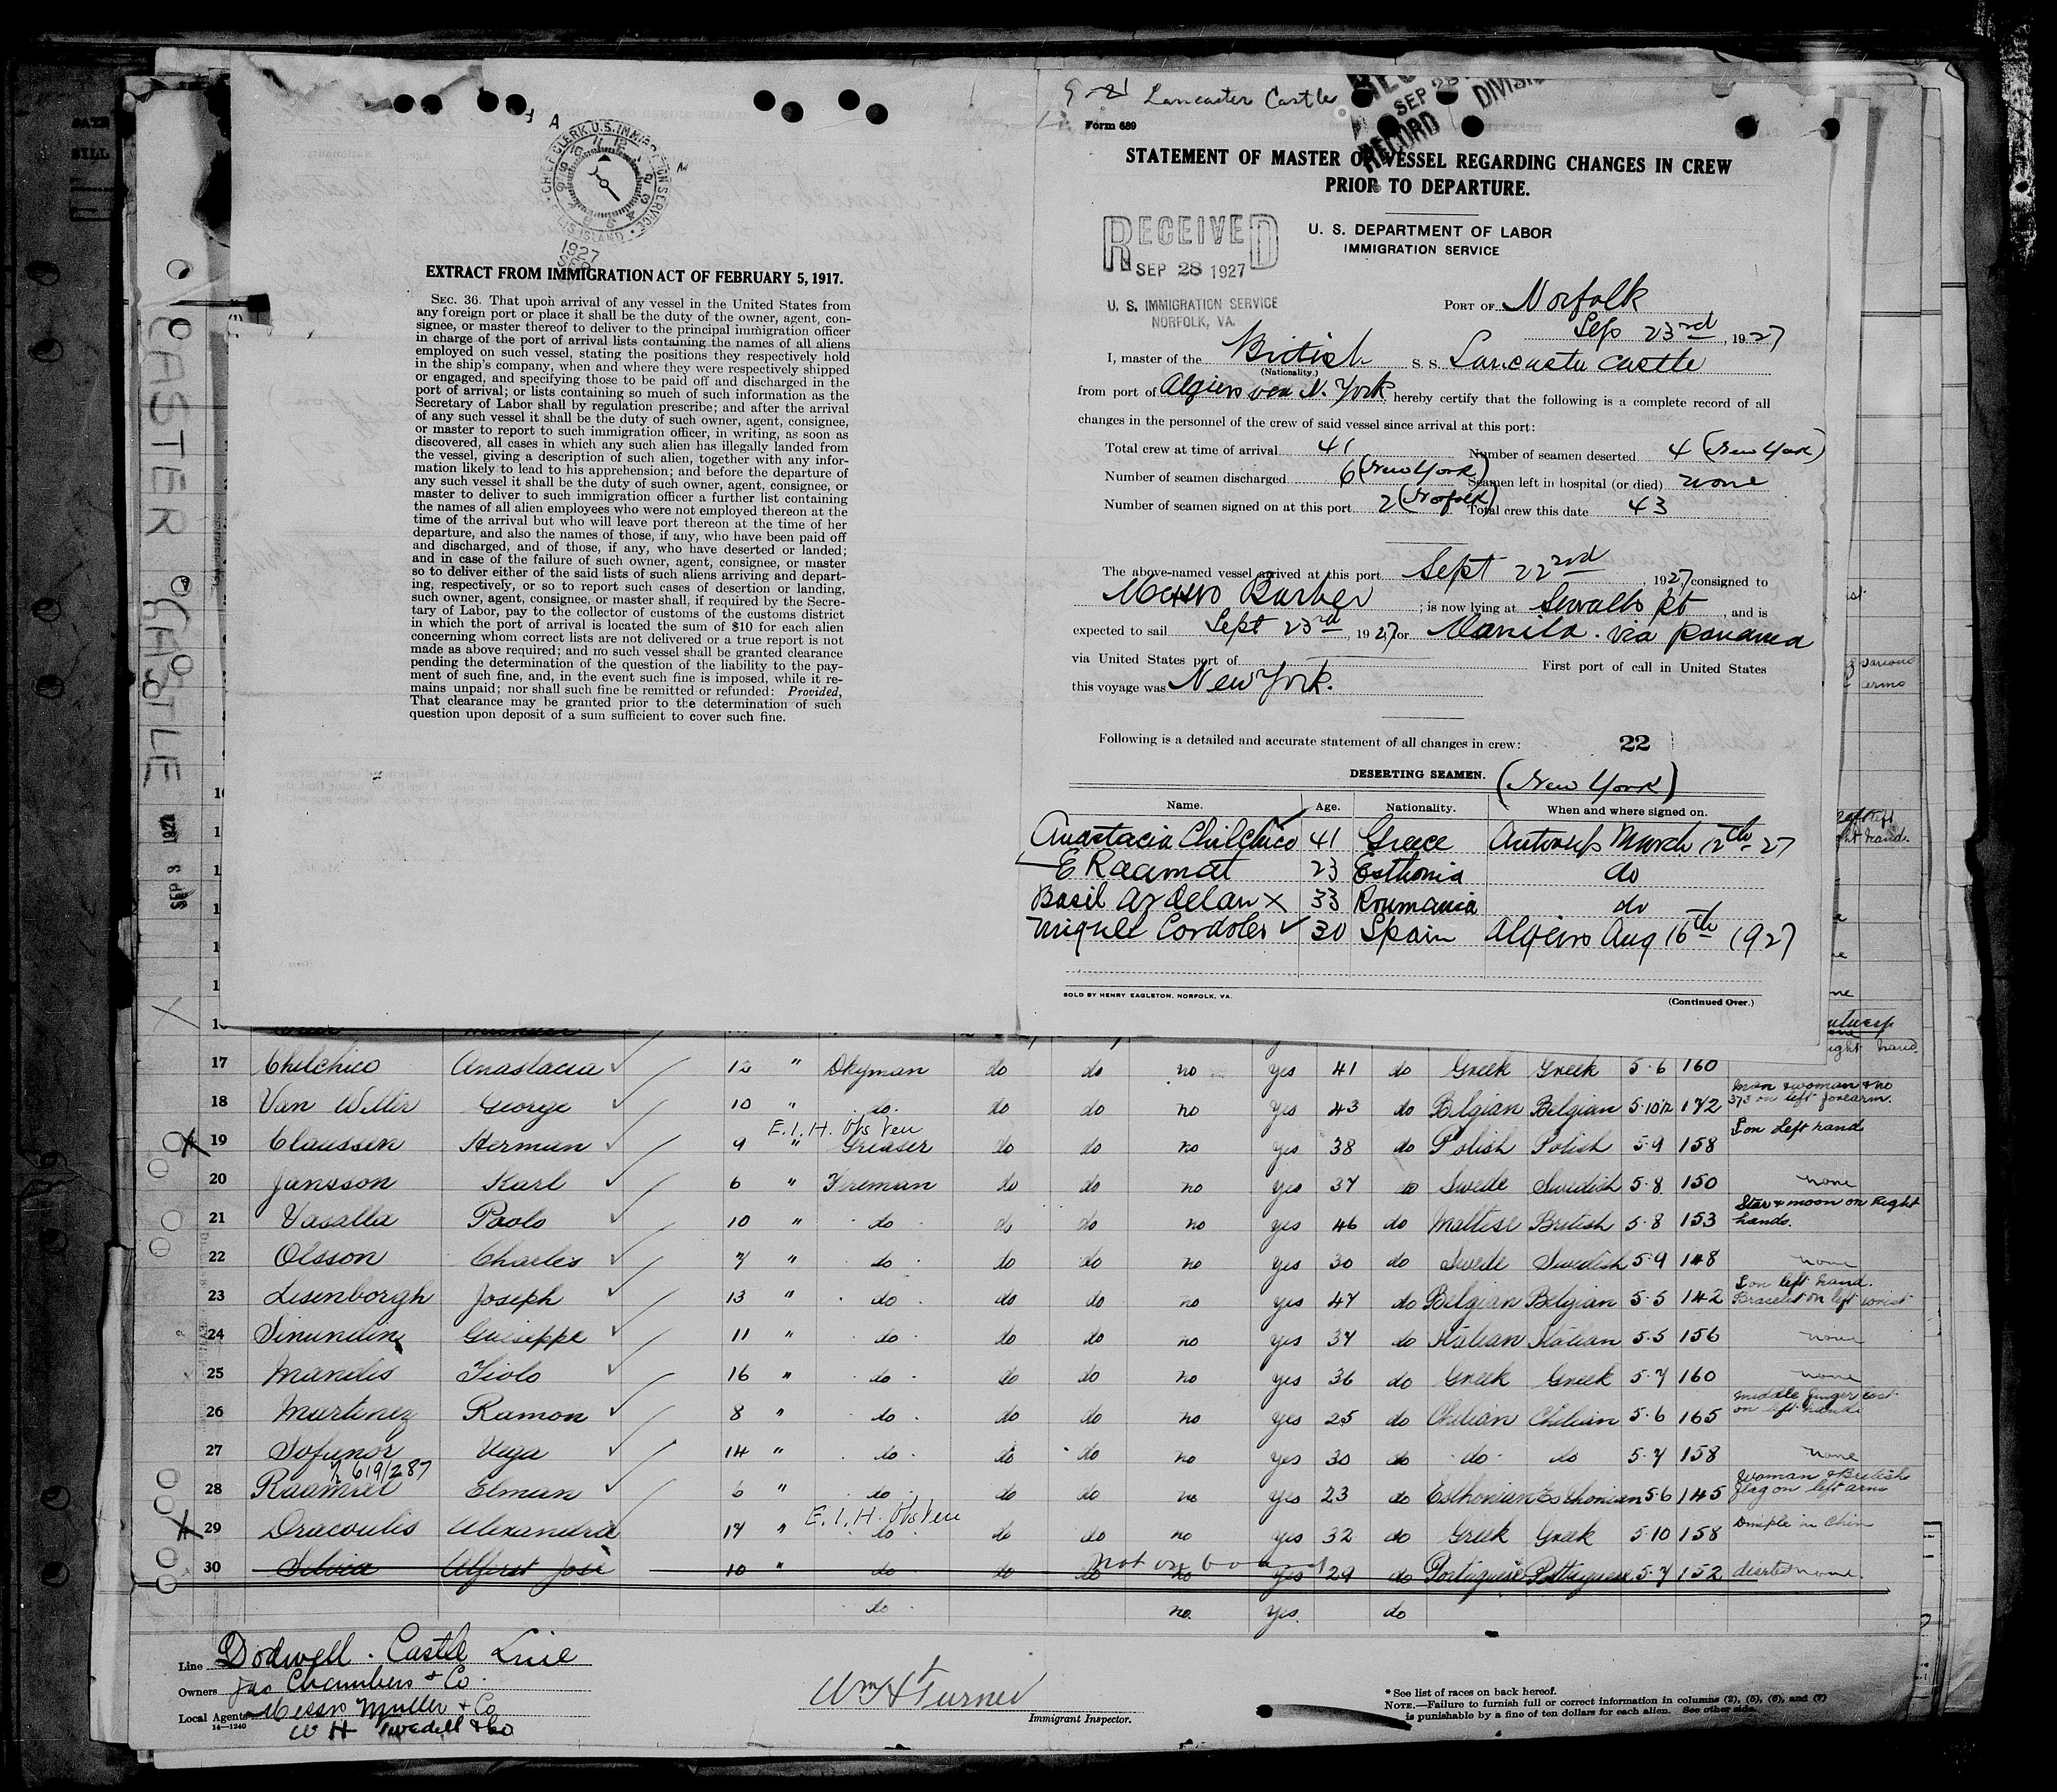 CASTER KASTLE
SEP 3 1927
CHIEF CLERK, U.S. IMMIGRATION SERVICE
ELLIS ISLAND
1927
SEP
EXTRACT FROM IMMIGRATION ACT OF FEBRUARY 5, 1917.
SEC. 36. That upon arrival of any vessel in the United States from
any foreign port or place it shall be the duty of the owner, agent, con-
signee, or master thereof to deliver to the principal immigration officer
in charge of the port of arrival lists containing the names of all aliens
employed on such vessel, stating the positions they respectively hold
in the ship's company, when and where they were respectively shipped
or engaged, and specifying those to be paid off and discharged in the
port of arrival; or lists containing so much of such information as the
Secretary of Labor shall by regulation prescribe; and after the arrival
of any such vessel it shall be the duty of such owner, agent, consignee,
or master to report to such immigration officer, in writing, as soon as
discovered, all cases in which any such alien has illegally landed from
the vessel, giving a description of such alien, together with any infor-
mation likely to lead to his apprehension; and before the departure of
any such vessel it shall be the duty of such owner, agent, consignee, or
master to deliver to such immigration officer a further list containing
the names of all alien employees who were not employed thereon at the
time of the arrival but who will leave port thereon at the time of her
departure, and also the names of those, if any, who have been paid off
and discharged, and of those, if any, who have deserted or landed;
and in case of the failure of such owner, agent, consignee, or master
so to deliver either of the said lists of such aliens arriving and depart-
ing, respectively, or so to report such cases of desertion or landing,
such owner, agent, consignee, or master shall, if required by the Secre-
tary of Labor, pay to the collector of customs of the customs district
in which the port of arrival is located the sum of $10 for each alien
concerning whom correct lists are not delivered or a true report is not
made as above required; and no such vessel shall be granted clearance
pending the determination of the question of the liability to the pay-
ment of such fine, and, in the event such fine is imposed, while it re-
mains unpaid; nor shall such fine be remitted or refunded: Provided,
That clearance may be granted prior to the determination of such
question upon deposit of a sum sufficient to cover such fine.
Lancaster Castle
SEP 28
RECORD DIVISION
Form 689
STATEMENT OF MASTER OF VESSEL REGARDING CHANGES IN CREW
PRIOR TO DEPARTURE.
U. S. DEPARTMENT OF LABOR
IMMIGRATION SERVICE
RECEIVED
SEP 28 1927
U. S. IMMIGRATION SERVICE
NORFOLK, VA.
PORT OF Norfolk
Sep 23rd, 1927
I, master of the British S. S. Lancaster Castle
(Nationality.)
from port of Algiers via N. York, hereby certify that the following is a complete record of all
changes in the personnel of the crew of said vessel since arrival at this port:
Total crew at time of arrival 41 Number of seamen deserted 4 (New York)
Number of seamen discharged 6 (New York) Seamen left in hospital (or died) none
Number of seamen signed on at this port 2 (Norfolk) Total crew this date 43
The above-named vessel arrived at this port Sept 22nd, 1927, consigned to
Messrs Barber; is now lying at Sewalls Pt, and is
expected to sail Sept 23rd, 1927 for Manila via Panama
via United States port of First port of call in United States
this voyage was New York.
Following is a detailed and accurate statement of all changes in crew: 22
DESERTING SEAMEN. (New York)
Name. Age. Nationality. When and where signed on.
Anastacia Chilchico 41 Greece Antwerp March 12th 27
E Raamat 23 Esthonia do
Basil Ardelan x 33 Roumania do
Miguel Cordoles 30 Spain Algiers Aug 16th 1927
SOLD BY HENRY EAGLETON, NORFOLK, VA. (Continued Over.)
17 Chilchico Anastacia 12 " Dkyman do do no yes 41 do Greek Greek 5-6 160
18 Van Witter George 10 " do do do no yes 43 do Belgian Belgian 5-10½ 172 man & woman & no 373 on left forearm.
E. I. H. Obs Ven
19 Claussen Herman 9 " Greaser do do no yes 38 do Polish Polish 5-9 158 I on Left hand
20 Jansson Karl 6 " Fireman do do no yes 37 do Swede Swedish 5-8 150 none
21 Vasalla Paolo 10 " do do do no yes 46 do Maltese British 5-8 153 Star & moon on Right hands.
22 Olsson Charles 7 " do do do no yes 30 do Swede Swedish 5-9 148 none
23 Lisenborgh Joseph 13 " do do do no yes 47 do Belgian Belgian 5-5 142 I on left hand. Bracelet on left wrist
24 Guiseppe 11 " do do do no yes 37 do Italian Italian 5-5 156 none
25 Mandis Tiolo 16 " do do do no yes 36 do Greek Greek 5-7 160 none
26 Martinez Ramon 8 " do do do no yes 25 do Chilian Chilian 5-6 165 middle finger lost on left hand
27 Sofunor Vega 14 " do do do no yes 30 do do do 5-7 158 none
619/287
28 Raamat Elmun 6 " do do do no yes 23 do Esthonian Esthonian 5-6 145 Woman & British flag on left arm
E. I. H. Obs Ven
29 Dracoulis Alexandra 17 " do do do no yes 32 do Greek Greek 5-10 158 Dimple in Chin
not on board
30 Silvia Alfret Jose 10 " do do do no yes 29 do Portuguese Portuguese 5-7 152 none.
do no. yes. do
Line Dodwell - Castle Line
Owners Jas Chambers & Co.
Local Agents Messrs Muller & Co
W H Swedell & Co
14—1240
Wm H Turner
Immigrant Inspector.
* See list of races on back hereof.
NOTE.—Failure to furnish full or correct information in columns (2), (5), (6), and (7)
is punishable by a fine of ten dollars for each alien. See other side.